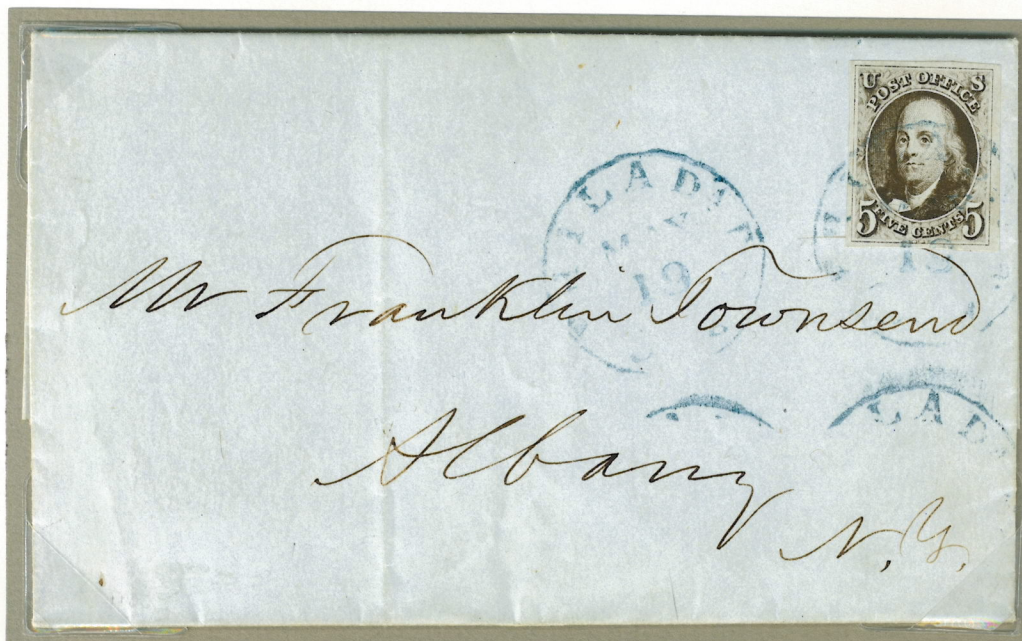 U S
POST OFFICE
5 FIVE CENTS 5
MAY
19
Mr Franklin Townsend
Albany
N.Y.
LAD